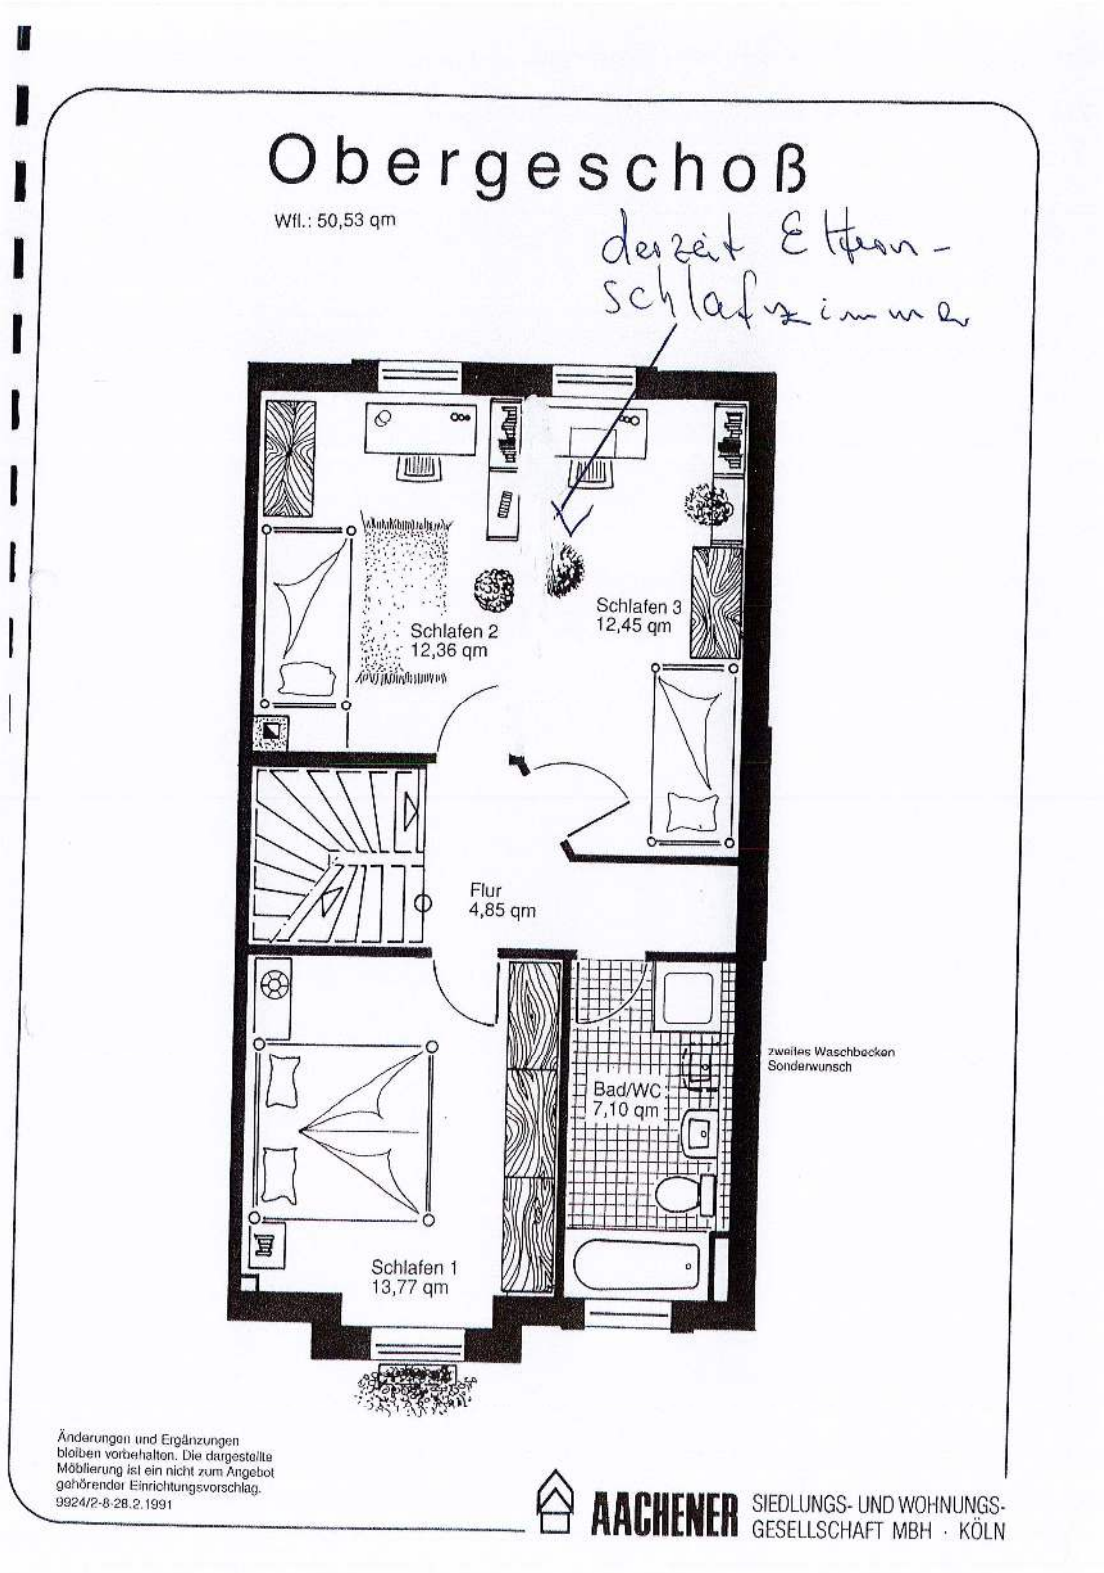 Obergeschoß
Wfl.: 50,53 qm
derzeit Eltern-
schlafzimmer
Schlafen 3
12,45 qm
Schlafen 2
12,36 qm
Flur
4,85 qm
zweites Waschbecken
Sonderwunsch
Bad/WC
7,10 qm
Schlafen 1
13,77 qm
Änderungen und Ergänzungen
bleiben vorbehalten. Die dargestellte
Möblierung ist ein nicht zum Angebot
gehörender Einrichtungsvorschlag.
9924/2-8-28.2.1991
AACHENER SIEDLUNGS- UND WOHNUNGS-
GESELLSCHAFT MBH · KÖLN